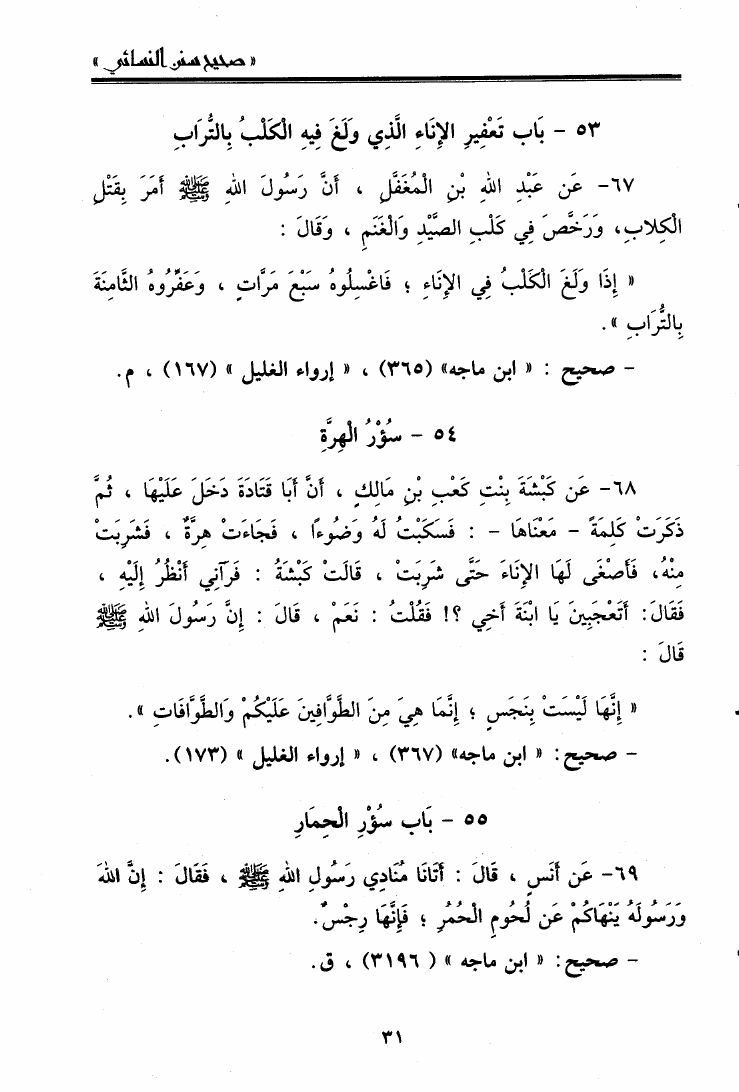 « صحيح سنن النسائي »
٥٣ - بَاب تَعْفِيرِ الإِنَاءِ الَّذِي وَلَغَ فِيهِ الْكَلْبُ بِالتُّرَابِ
٦٧- عَن عَبْدِ اللهِ بْنِ الْمُغَفَّلِ ، أَنَّ رَسُولَ اللهِ ﷺ أَمَرَ بِقَتْلِ
الْكِلابِ، وَرَخَّصَ فِي كَلْبِ الصَّيْدِ وَالْغَنَمِ ، وَقَالَ :
« إِذَا وَلَغَ الْكَلْبُ فِي الإِنَاءِ ؛ فَاغْسِلُوهُ سَبْعَ مَرَّاتٍ ، وَعَفِّرُوهُ الثَّامِنَةَ
بِالتُّرَابِ ».
- صحيح : « ابن ماجه» (٣٦٥) ، « إرواء الغليل » (١٦٧) ، م.
٥٤ - سُؤْرُ الْهِرَّةِ
٦٨- عَن كَبْشَةَ بِنْتِ كَعْبِ بْنِ مَالِكٍ ، أَنَّ أَبَا قَتَادَةَ دَخَلَ عَلَيْهَا ، ثُمَّ
ذَكَرَتْ كَلِمَةً - مَعْنَاهَا - : فَسَكَبْتُ لَهُ وَضُوءًا ، فَجَاءَتْ هِرَّةٌ ، فَشَرِبَتْ
مِنْهُ، فَأَصْغَى لَهَا الإِنَاءَ حَتَّى شَرِبَتْ ، قَالَتْ كَبْشَةُ : فَرَآنِي أَنْظُرُ إِلَيْهِ ،
فَقَالَ: أَتَعْجَبِينَ يَا ابْنَةَ أَخِي ؟! فَقُلْتُ : نَعَمْ ، قَالَ : إِنَّ رَسُولَ اللهِ ﷺ
قَالَ :
« إِنَّهَا لَيْسَتْ بِنَجَسٍ ؛ إِنَّمَا هِيَ مِنَ الطَّوَّافِينَ عَلَيْكُمْ وَالطَّوَّافَاتِ ».
- صحيح: « ابن ماجه» (٣٦٧) ، « إرواء الغليل » (١٧٣).
٥٥ - بَاب سُؤْرِ الْحِمَارِ
٦٩- عَن أَنَسٍ ، قَالَ : أَتَانَا مُنَادِي رَسُولِ اللهِ ﷺ ، فَقَالَ : إِنَّ اللهَ
وَرَسُولَهُ يَنْهَاكُمْ عَن لُحُومِ الْحُمُرِ ؛ فَإِنَّهَا رِجْسٌ.
- صحيح: « ابن ماجه » ( ٣١٩٦) ، ق.
٣١